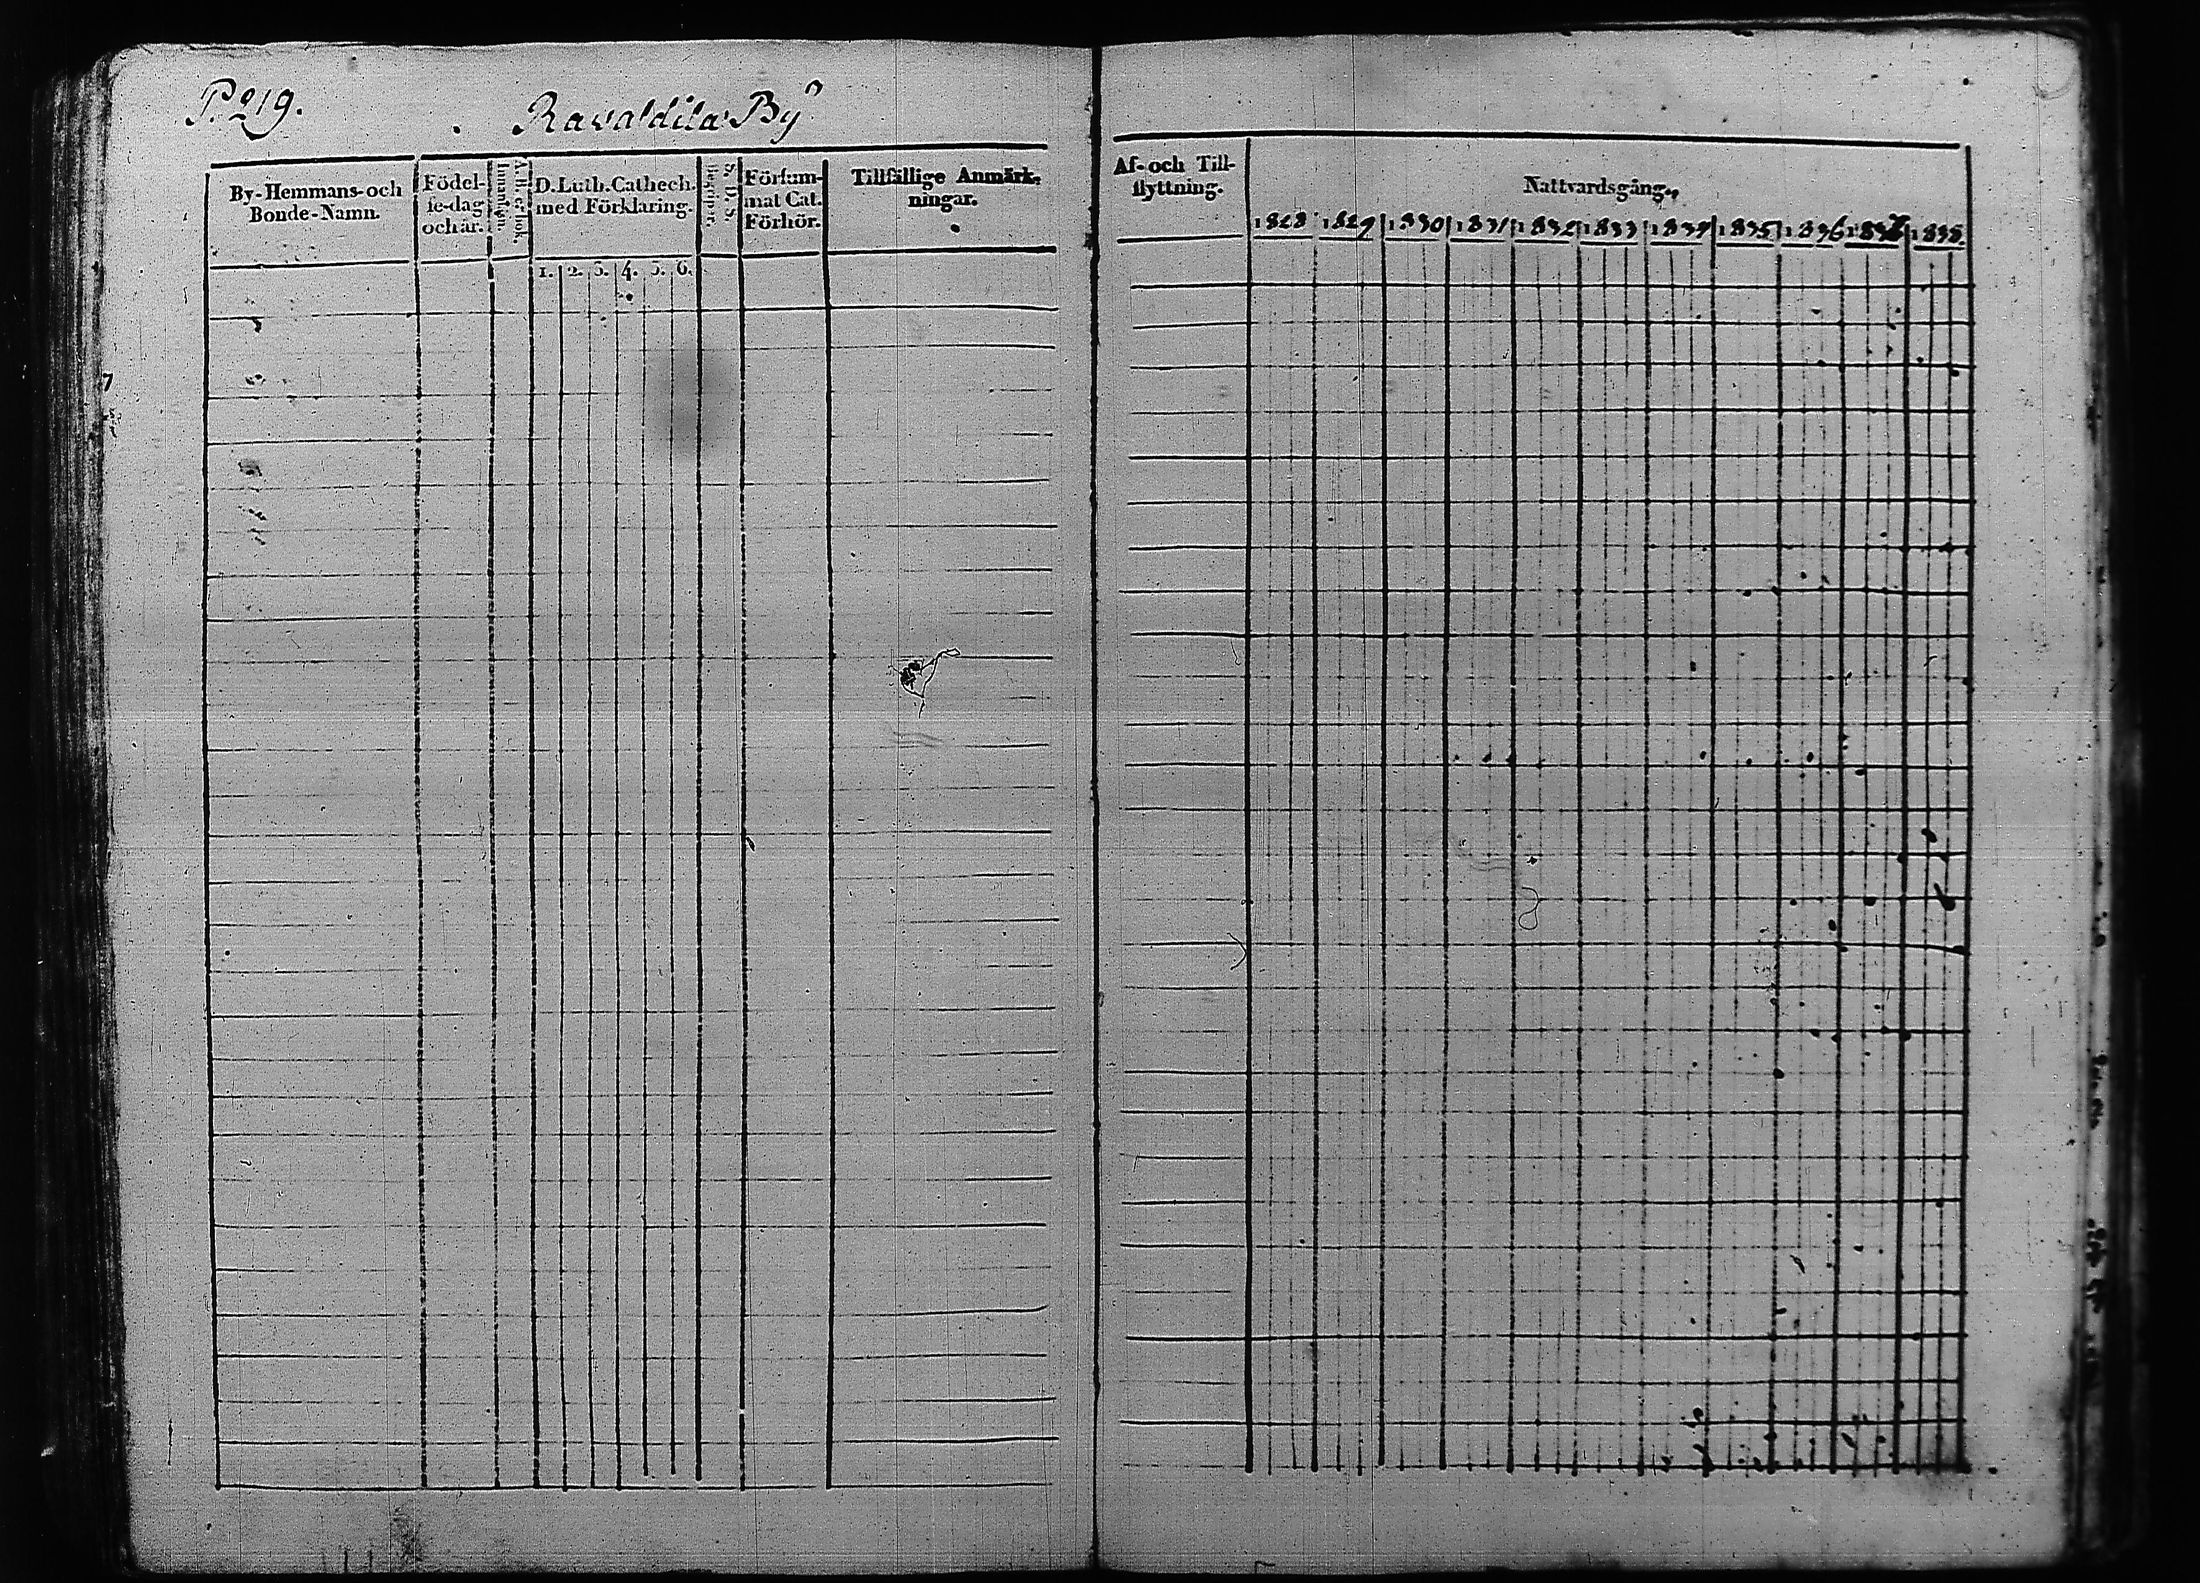 P. 219.
Ravaldila By
By-Hemmans-och
Bonde-Namn.
Födel-
se-dag
och år.
Innanläsn.
D. Luth. Cathech.
med Förklaring.
1. 2. 3. 4. 5. 6.
Försum-
mat Cat.
Förhör.
Tillfällige Anmärk-
ningar.
Af- och Till-
flyttning.
Nattvardsgång.
1828 1829 1830 1831 1832 1833 1834 1835 1836 1837 1838